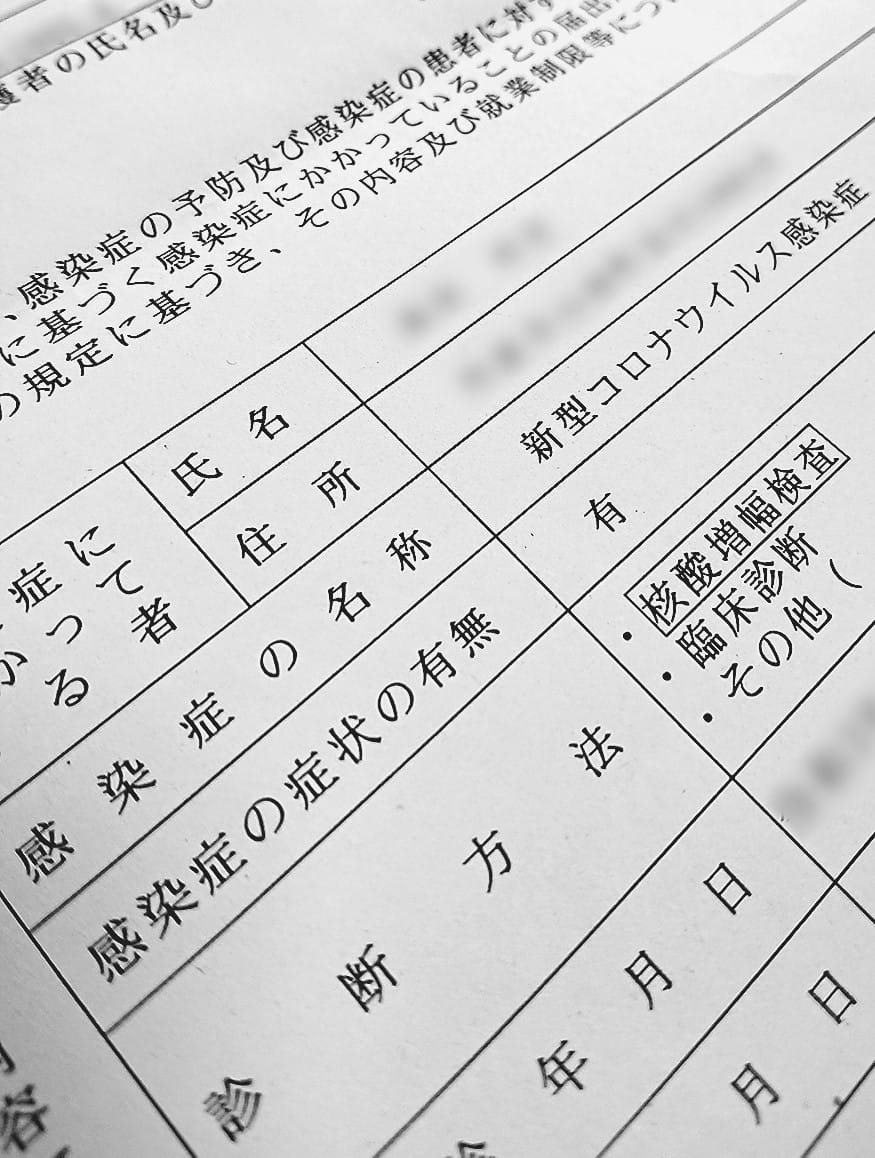 護者の氏名及び
、感染症の予防及び感染症の患者に対す
に基づく感染症にかかっていることの届出
の規定に基づき、その内容及び就業制限等につ
症に
かって
る者
氏名
住所
感染症の名称
新型コロナウイルス感染症
感染症の症状の有無
有
診断方法
・核酸増幅検査
・臨床診断
・その他（
診
年月日
月日
容